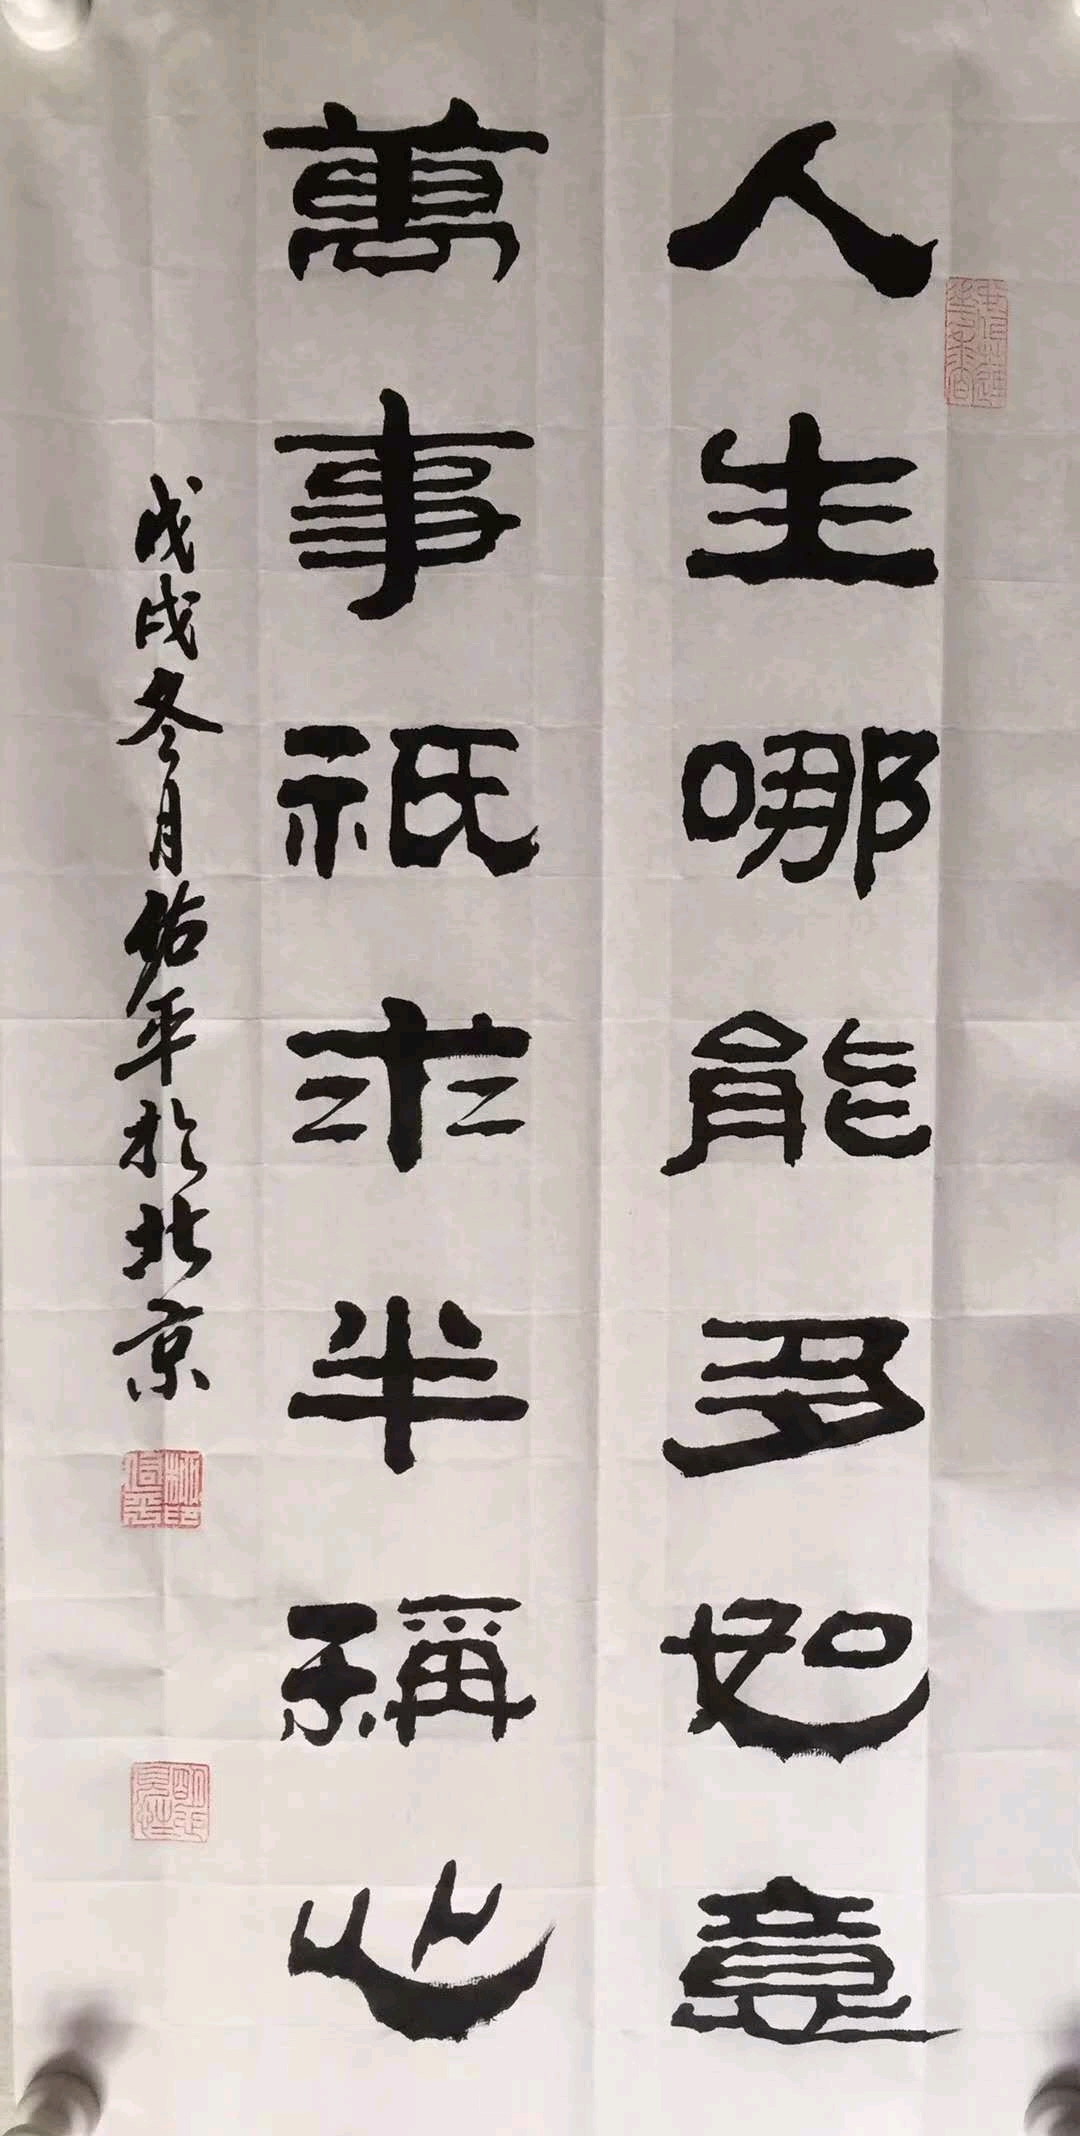 人生哪能多如意
萬事祇求半稱心
戊戌冬月佑平於北京